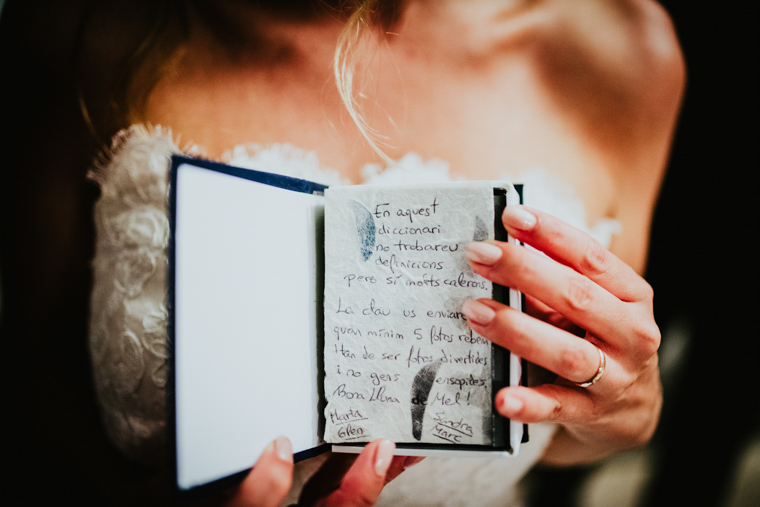 En aquest
diccionari
no trobareu
definicions
pero sí molts calerons.
La clau us enviare
quan mínim 5 fotos rebem
Han de ser fotos divertides
i no gens ensopides,
Bona Lluna de Mel!
Marta Sandra
Glen Marc